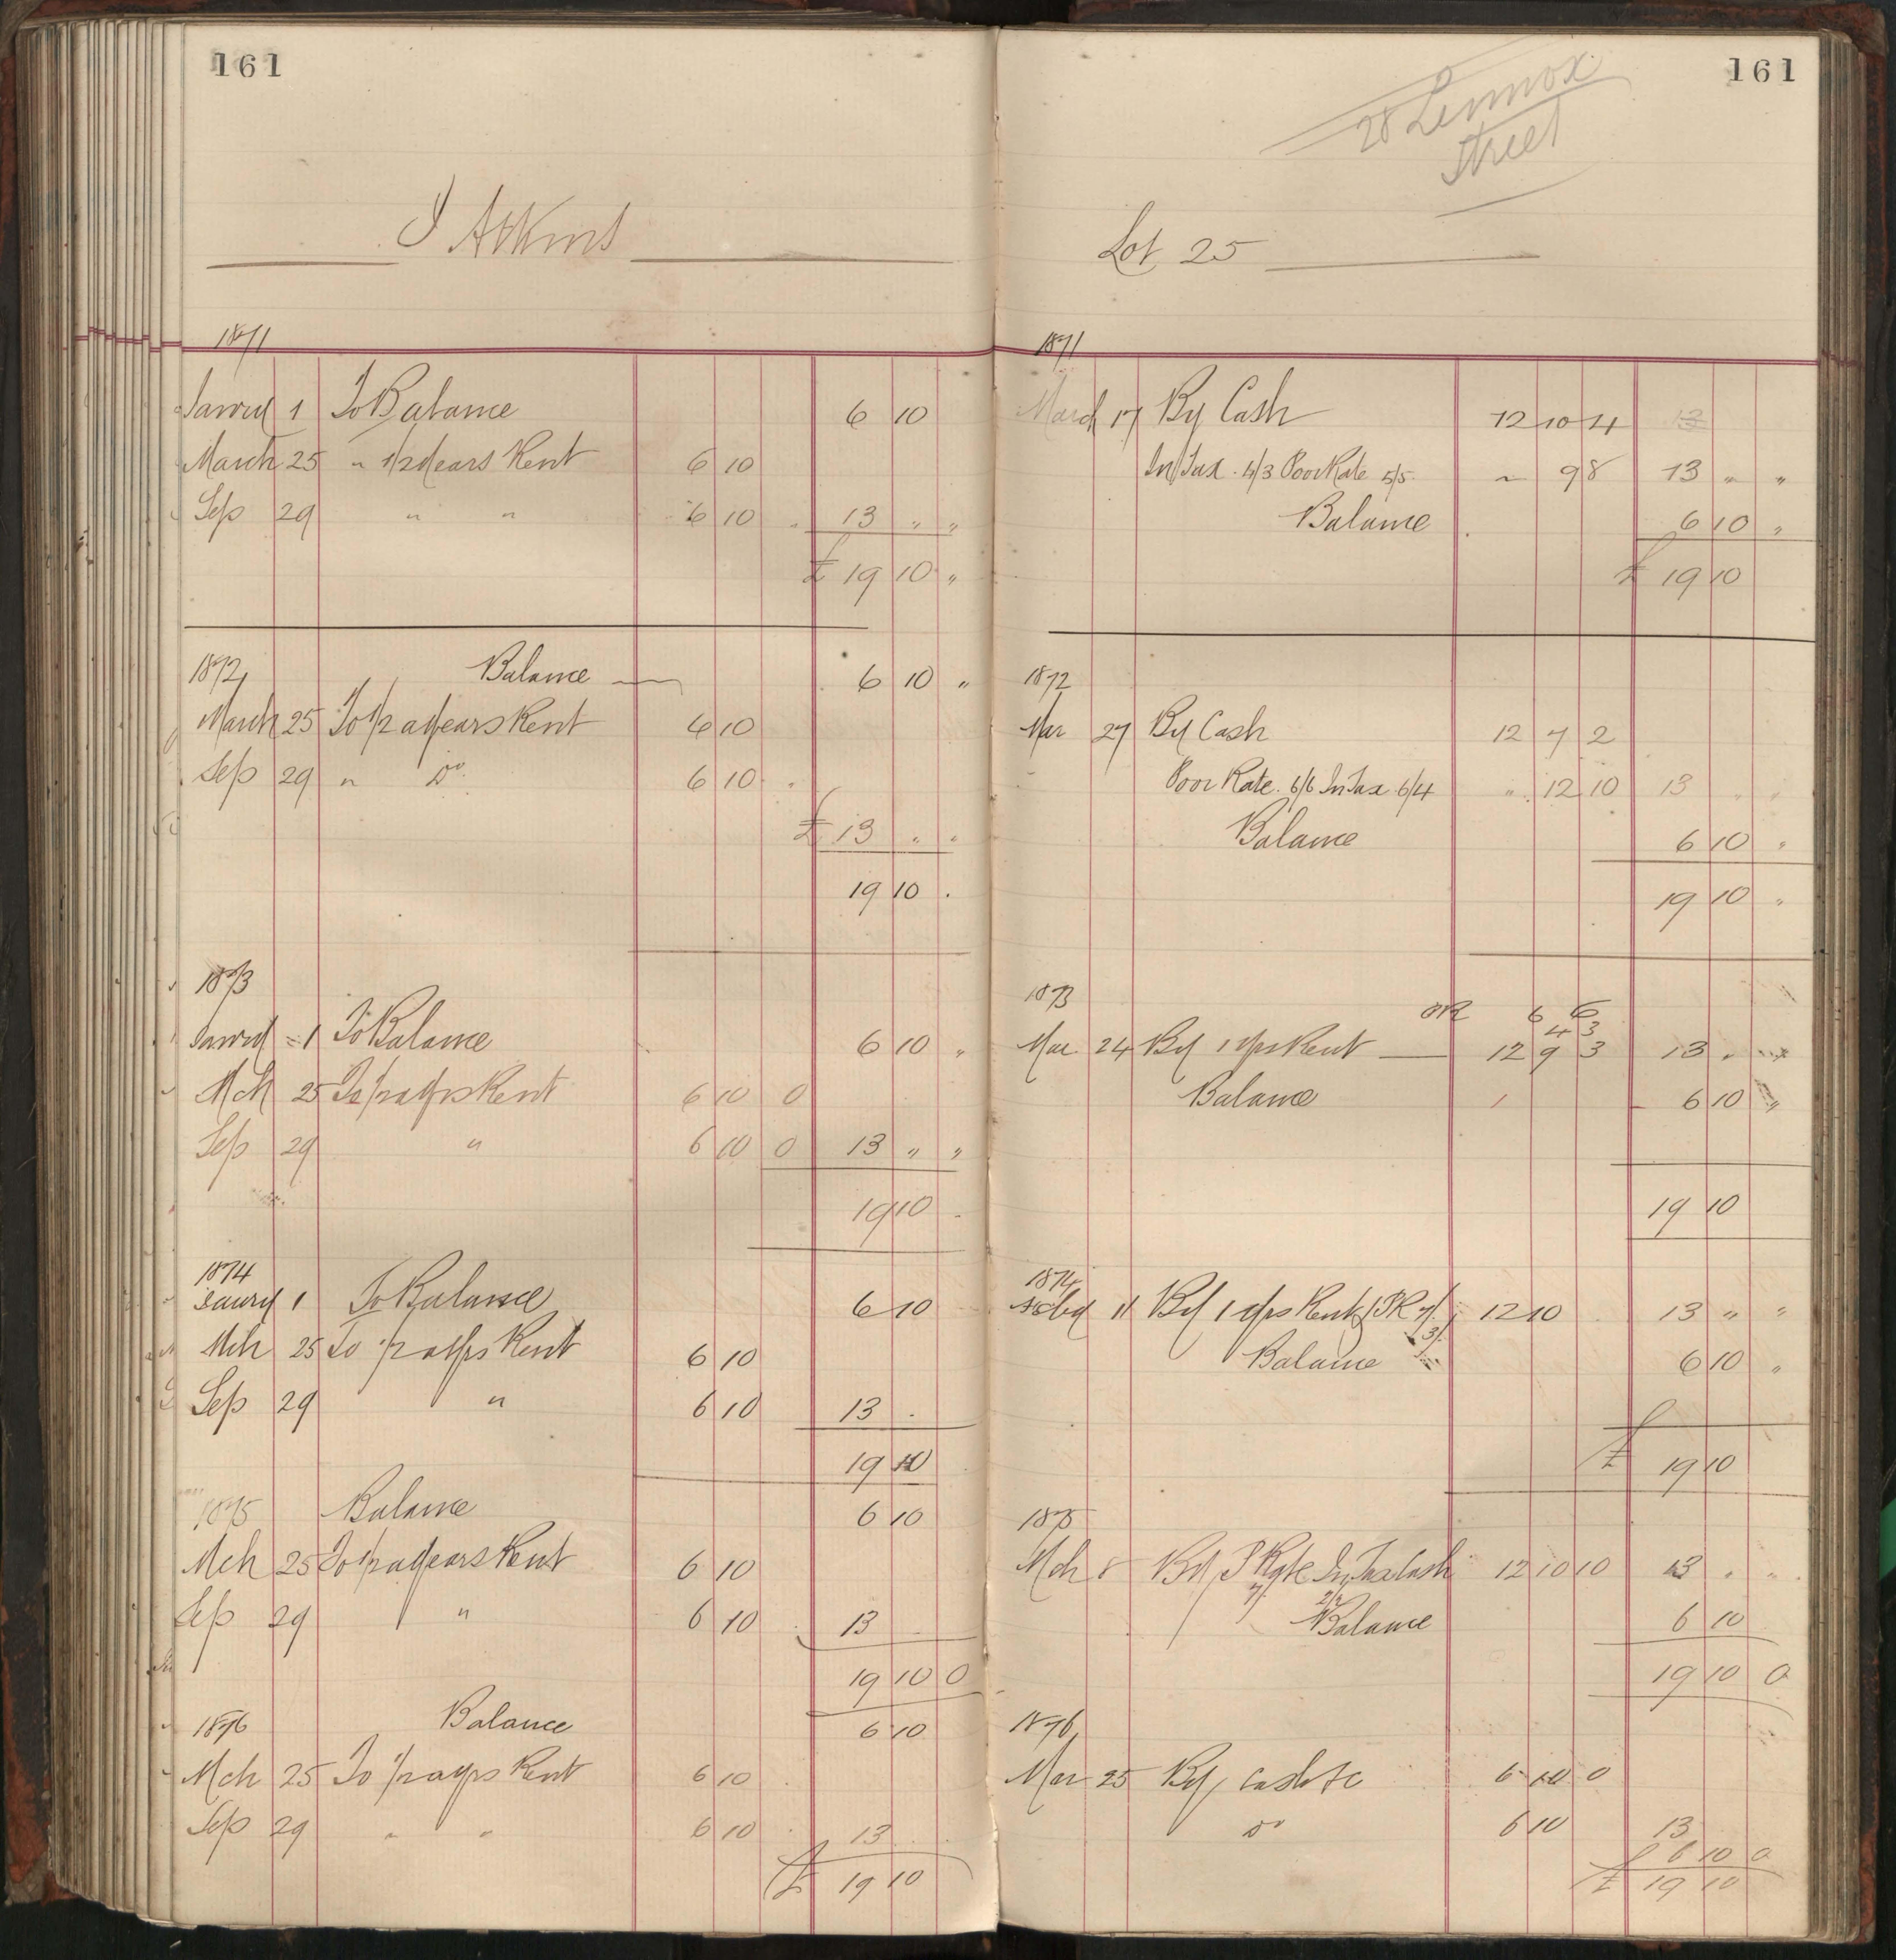 161
J Atkins
1871
Janry 1 To Balance 6 10
March 25 " 1/2 Years Rent 6 10
Sep 29 " " 6 10 13 " "
£ 19 10 "
1872 Balance 6 10 "
March 25 To 1/2 a Years Rent 6 10
Sep 29 " Do 6 10
£ 13 " "
19 10
1873
Janry 1 To Balance 6 10 "
Mch 25 To 1/2 a Yrs Rent 6 10 0
Sep 29 " 6 10 0 13 " "
19 10
1874
Janry 1 To Balance 6 10
Mch 25 To 1/2 a Yrs Rent 6 10
Sep 29 " 6 10 13
19 10
1875 Balance 6 10
Mch 25 To 1/2 a Years Rent 6 10
Sep 29 " 6 10 13
19 10 0
1876 Balance 6 10
Mch 25 To 1/2 a Yrs Rent 6 10
Sep 29 " " 6 10 13
£ 19 10
161
28 Lennox
Street
Lot 25
1871
March 17 By Cash 12 10 4 13
In Tax 4/3 Poor Rate 5/5 " 9 8 13 " "
Balance 6 10 "
£ 19 10
1872
Mar 27 By Cash 12 7 2
Poor Rate 6/6 In Tax 6/4 " 12 10 13 " "
Balance 6 10 "
19 10 "
1873
PR 6 6
4 3
Mar 24 By 1 Yrs Rent 12 9 3 13
Balance 6 10 "
19 10
1874
11 By 1 Yrs Rent (PR 7/ 12 10 13 " "
3/
Balance 6 10 "
£ 19 10
1875
Mch 8 By P Rate In Tax Cash 12 10 10 13 " "
7/ 2/2
Balance 6 10
19 10 0
1876
Mar 25 By Cash &c 6 10 0
Do 6 10 13
6 10 0
£ 19 10